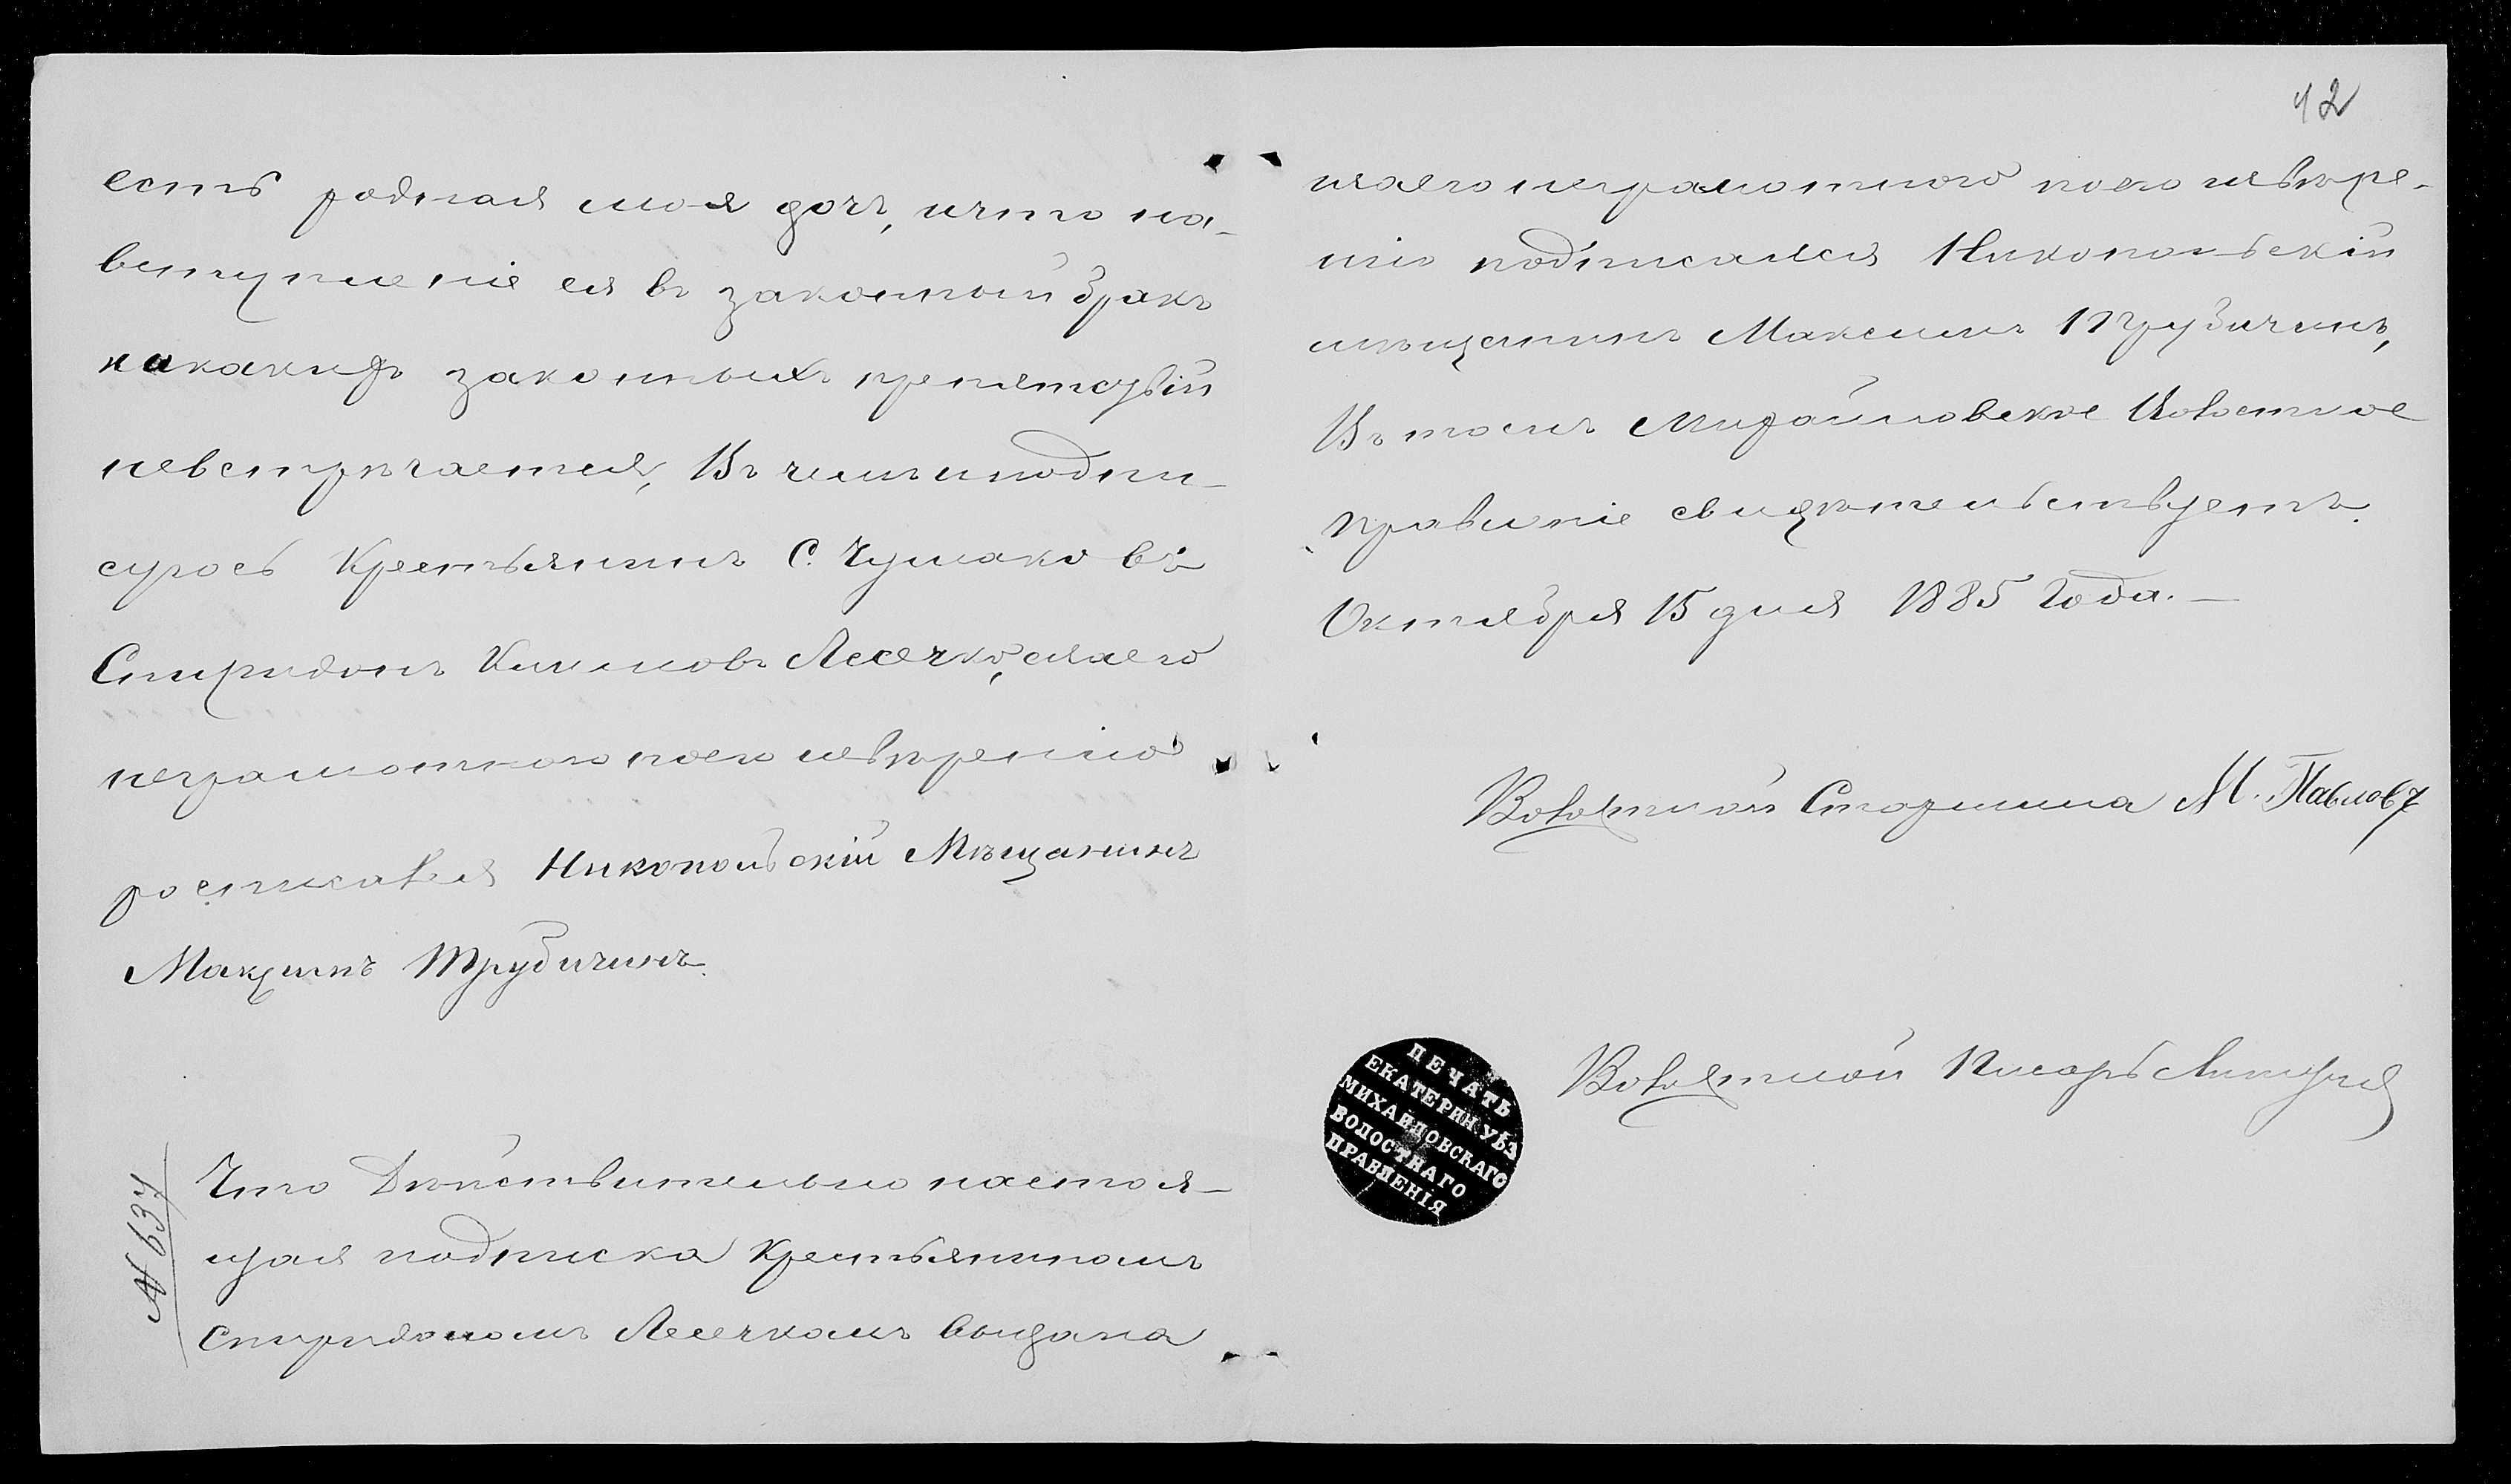 есть родная моя дочь, ичто на-
вступленіе ея въ законный бракъ
никакихъ законныхъ препятсувій
невстречается, Въ чемъ иподпи-
суюсь Крестьянинъ С. Чумаковъ
Спиридонъ Климовъ Лесечко, анаего
неграмотного поего недоверенію
росписавься Никопольскій Мѣщанинъ
Максимъ Трубичинъ.
№ 637
Что Дѣйствительно настоя-
щая подписка Крестьяниномъ
Спиридономъ Лесечкомъ выдана
42
инаего неграмотного поего доверe-
нію подписался Никопольскій
мѣщанинъ Максимъ Трубичинъ,
Въ томъ Михайловское Волостное
правленіе свидѣтельствуетъ.
Октября 15 дня 1885 Года. —
Волостной Старшина М. Павловъ
Волостной Писарь
ПЕЧАТЬ
ЕКАТЕРИН УѢЗ
МИХАЙЛОВСКАГО
ВОЛОСТНАГО
ПРАВЛЕНІЯ